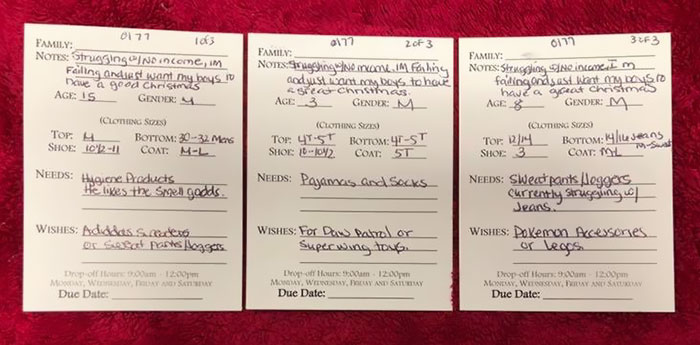 0177 1 of 3
FAMILY:
NOTES: Struggling w/No income, IM
Failing and just want my boys to
have a good Christmas
AGE: 15 GENDER: M
(CLOTHING SIZES)
TOP: M BOTTOM: 30-32 Mens
SHOE: 10½-11 COAT: M-L
NEEDS: Hygiene Products
He likes the Smell goods.
WISHES: Adidas Sweaters
or Sweat Pants/Joggers
Drop-off Hours: 9:00am - 12:00pm
MONDAY, WEDNESDAY, FRIDAY AND SATURDAY
Due Date:
0177 2 of 3
FAMILY:
NOTES: Struggling w/No income, IM Failing
and just want my boys to have
a great Christmas.
AGE: 3 GENDER: M
(CLOTHING SIZES)
TOP: 4T-5T BOTTOM: 4T-5T
SHOE: 10-10½ COAT: 5T
NEEDS: Pajamas and Socks
WISHES: For Paw Patrol or
Super wing toys.
Drop-off Hours: 9:00am - 12:00pm
MONDAY, WEDNESDAY, FRIDAY AND SATURDAY
Due Date:
0177 3 of 3
FAMILY:
NOTES: Struggling w/No income, I m
failing and just want my boys to
have a great Christmas
AGE: 8 GENDER: M
(CLOTHING SIZES)
TOP: 12/14 BOTTOM: 14/16 Jeans
m-Sweat
SHOE: 3 COAT: M-L
NEEDS: Sweatpants/Joggers
currently struggling w/
Jeans.
WISHES: Pokemon Accessories
or Legos.
Drop-off Hours: 9:00am - 12:00pm
MONDAY, WEDNESDAY, FRIDAY AND SATURDAY
Due Date: